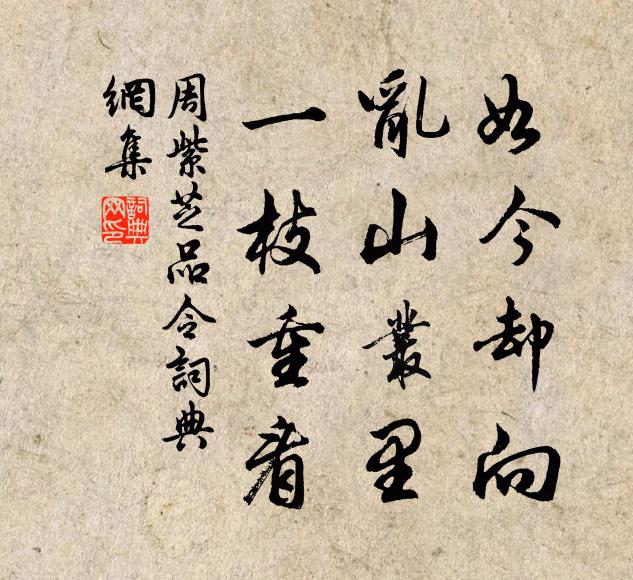 如今却向
亂山叢里
一枝重看
周紫芝品令詞典
網集
詞典
网印